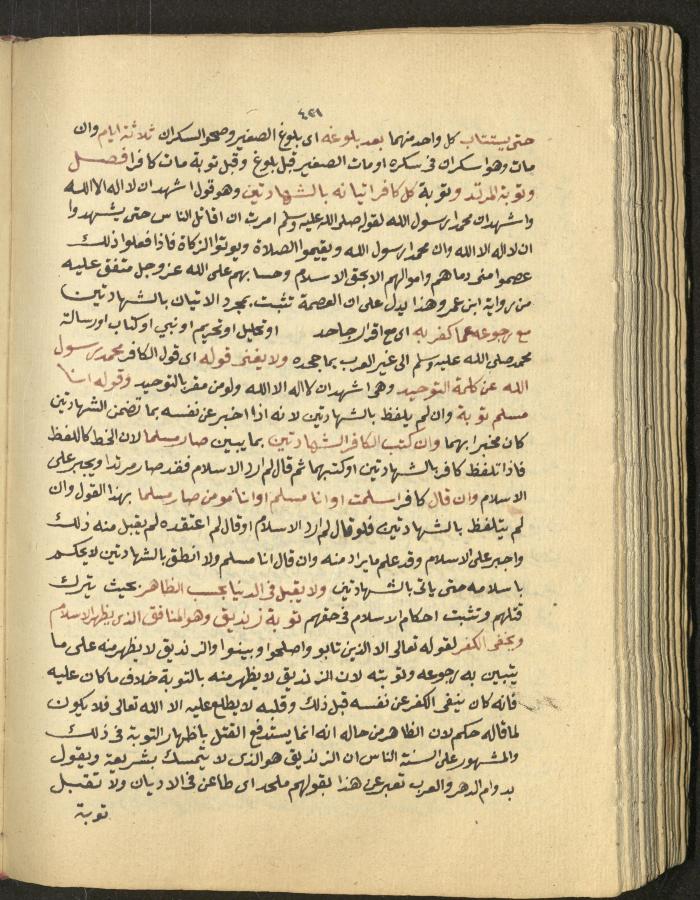 ٤٢١
حتى يستتاب كل واحد منهما بعد بلوغه اى بلوغ الصغير وصحو السكران ثلاثة ايام وان
مات وهو سكران فى سكره او مات الصغير قبل بلوغ وقبل توبة مات كافرا فصل
وتوبة المرتد وتوبة كل كافر اتيانه بالشهادتين وهو قول اشهد ان لا اله الا الله
واشهد ان محمدا رسول الله لقوله صلى الله عليه وسلم امرت ان اقاتل الناس حتى يشهدوا
ان لا اله الا الله وان محمدا رسول الله ويقيموا الصلاة ويوتوا الزكاة فاذا فعلوا ذلك
عصموا منى دماهم واموالهم الا بحق الاسلام وحسابهم على الله عز وجل متفق عليه
من رواية ابن عمر وهذا يدل على ان العصمة تثبت بمجرد الاتيان بالشهادتين
مع رجوعه عما كفر به اى مع اقرار جاحد او تحليل او تحريم او نبي او كتاب او رسالة
محمد صلى الله عليه وسلم الى غير العرب بما جحده ولا يغنى قوله اى قول الكافر محمد رسول
الله عن كلمة التوحيد وهى اشهد ان لا اله الا الله ولو من مقر بالتوحيد وقوله انا
مسلم توبة وان لم يلفظ بالشهادتين لانه اذا اخبر عن نفسه بما تضمن الشهادتين
كان مخبرا بهما وان كتب الكافر الشهادتين بما يبين صار مسلما لان الخط كاللفظ
فاذا تلفظ كافر بالشهادتين او كتبهما ثم قال لم ارد الاسلام فقد صار مرتدا ويجبر على
الاسلام وان قال كافر اسلمت او انا مسلم او انا مومن صار مسلما بهذا القول وان
لم يتلفظ بالشهادتين فلو قال لم ارد الاسلام او قال لم اعتقده لم يقبل منه ذلك
واجبر على الاسلام وقد علم ما يراد منه وان قال انا مسلم ولا انطق بالشهادتين لا يحكم
باسلامه حتى ياتى بالشهادتين ولا يقبل فى الدنيا بحسب الظاهر بحيث يترك
قتلهم وتثبت احكام الاسلام فى حقهم توبة زنديق وهو المنافق الذى يظهر الاسلام
ويخفى الكفر لقوله تعالى الا الذين تابو واصلحوا وبينوا والزنديق لا يظهر منه على ما
يتبين به رجوعه وتوبته لان الزنديق لا يظهر منه بالتوبة خلاف ما كان عليه
فانه كان ينفى الكفر عن نفسه قبل ذلك وقلبه لا يطلع عليه الا الله تعالى فلا يكون
لما قاله حكم لان الظاهر من حاله انه انما يستدفع القتل باظهار التوبة فى ذلك
والمشهور على السنة الناس ان الزنديق هو الذى لا يتمسك بشريعة ويقول
بدوام الدهر والعرب تعبر عن هذا بقولهم ملحد اى طاعن فى الاديان ولا تقبل
توبة